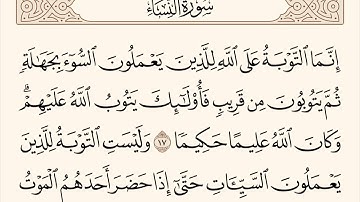 سُورَةُ النِّسَاءِ
إِنَّمَا ٱلتَّوْبَةُ عَلَى ٱللَّهِ لِلَّذِينَ يَعْمَلُونَ ٱلسُّوٓءَ بِجَهَٰلَةٖ
ثُمَّ يَتُوبُونَ مِن قَرِيبٖ فَأُوْلَٰٓئِكَ يَتُوبُ ٱللَّهُ عَلَيْهِمْۗ
وَكَانَ ٱللَّهُ عَلِيمًا حَكِيمٗا ١٧ وَلَيْسَتِ ٱلتَّوْبَةُ لِلَّذِينَ
يَعْمَلُونَ ٱلسَّيِّـَٔاتِ حَتَّىٰٓ إِذَا حَضَرَ أَحَدَهُمُ ٱلْمَوْتُ